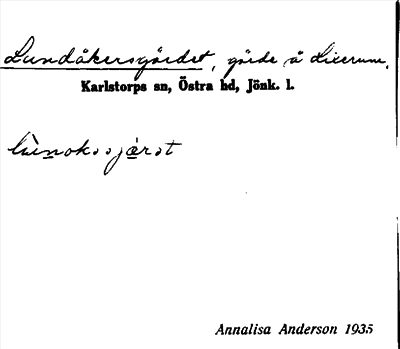 Lundåkersgärdet, gärde å Lixerum.
Karlstorps sn, Östra hd, Jönk. l.
Annalisa Anderson 1935